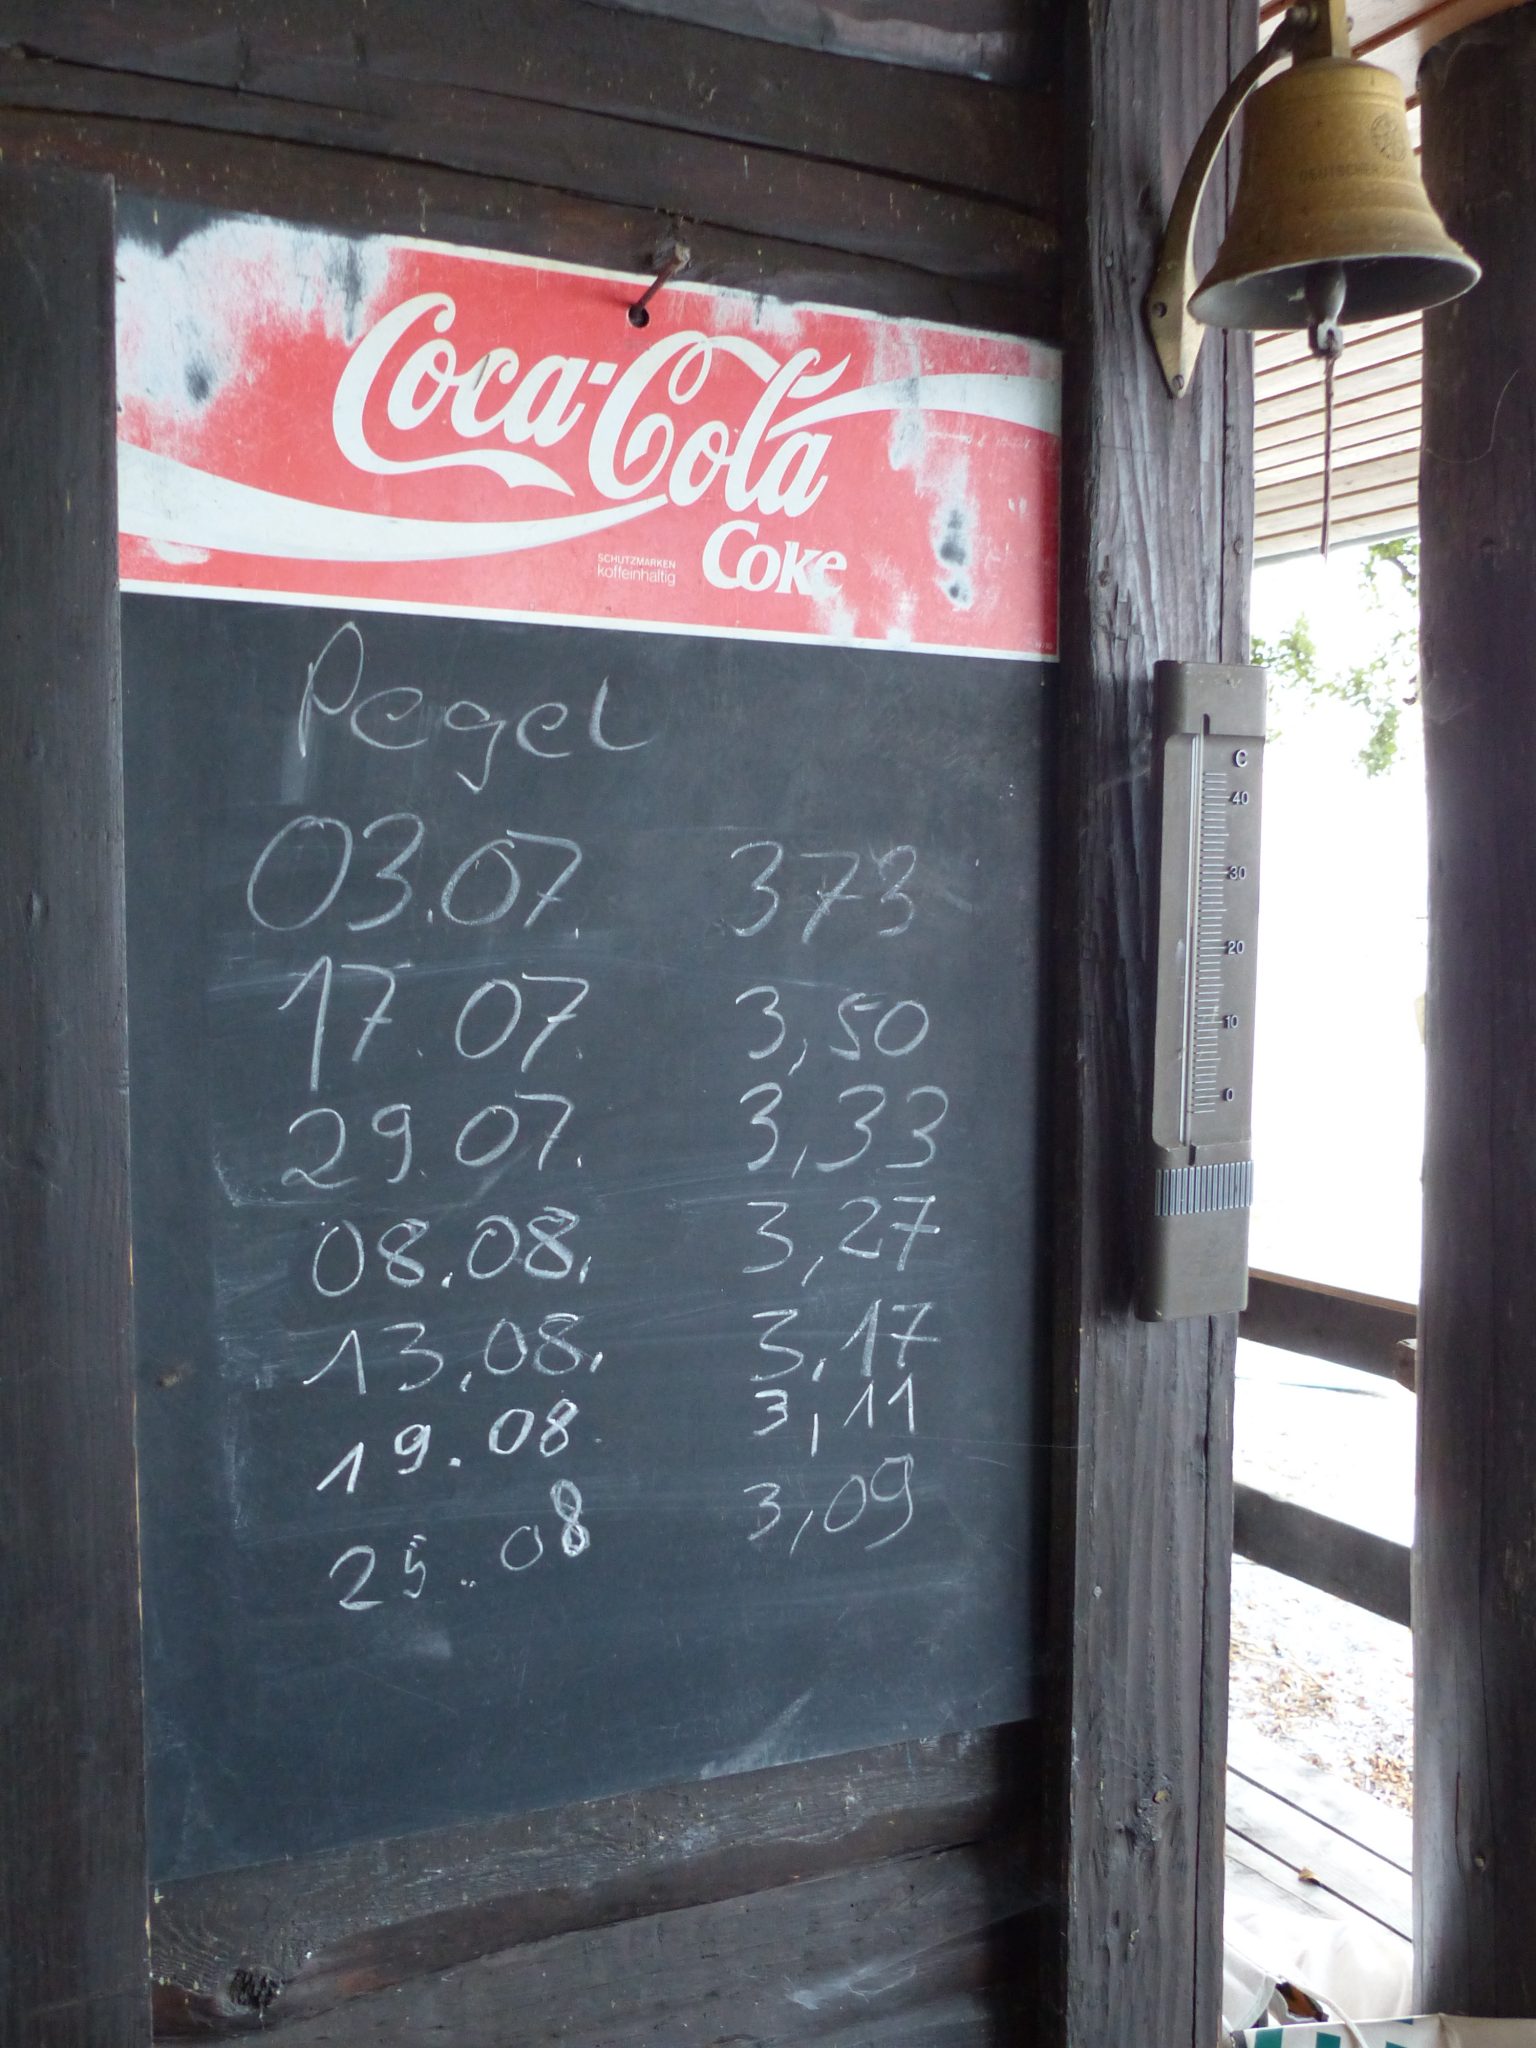 DEUTSCHER
Coca-Cola
Coke
SCHUTZMARKEN
koffeinhaltig
Pegel
03.07. 373
17.07. 3,50
29.07. 3,33
08.08. 3,27
13.08. 3,17
19.08. 3,11
25.08 3,09
C
40
30
20
10
0